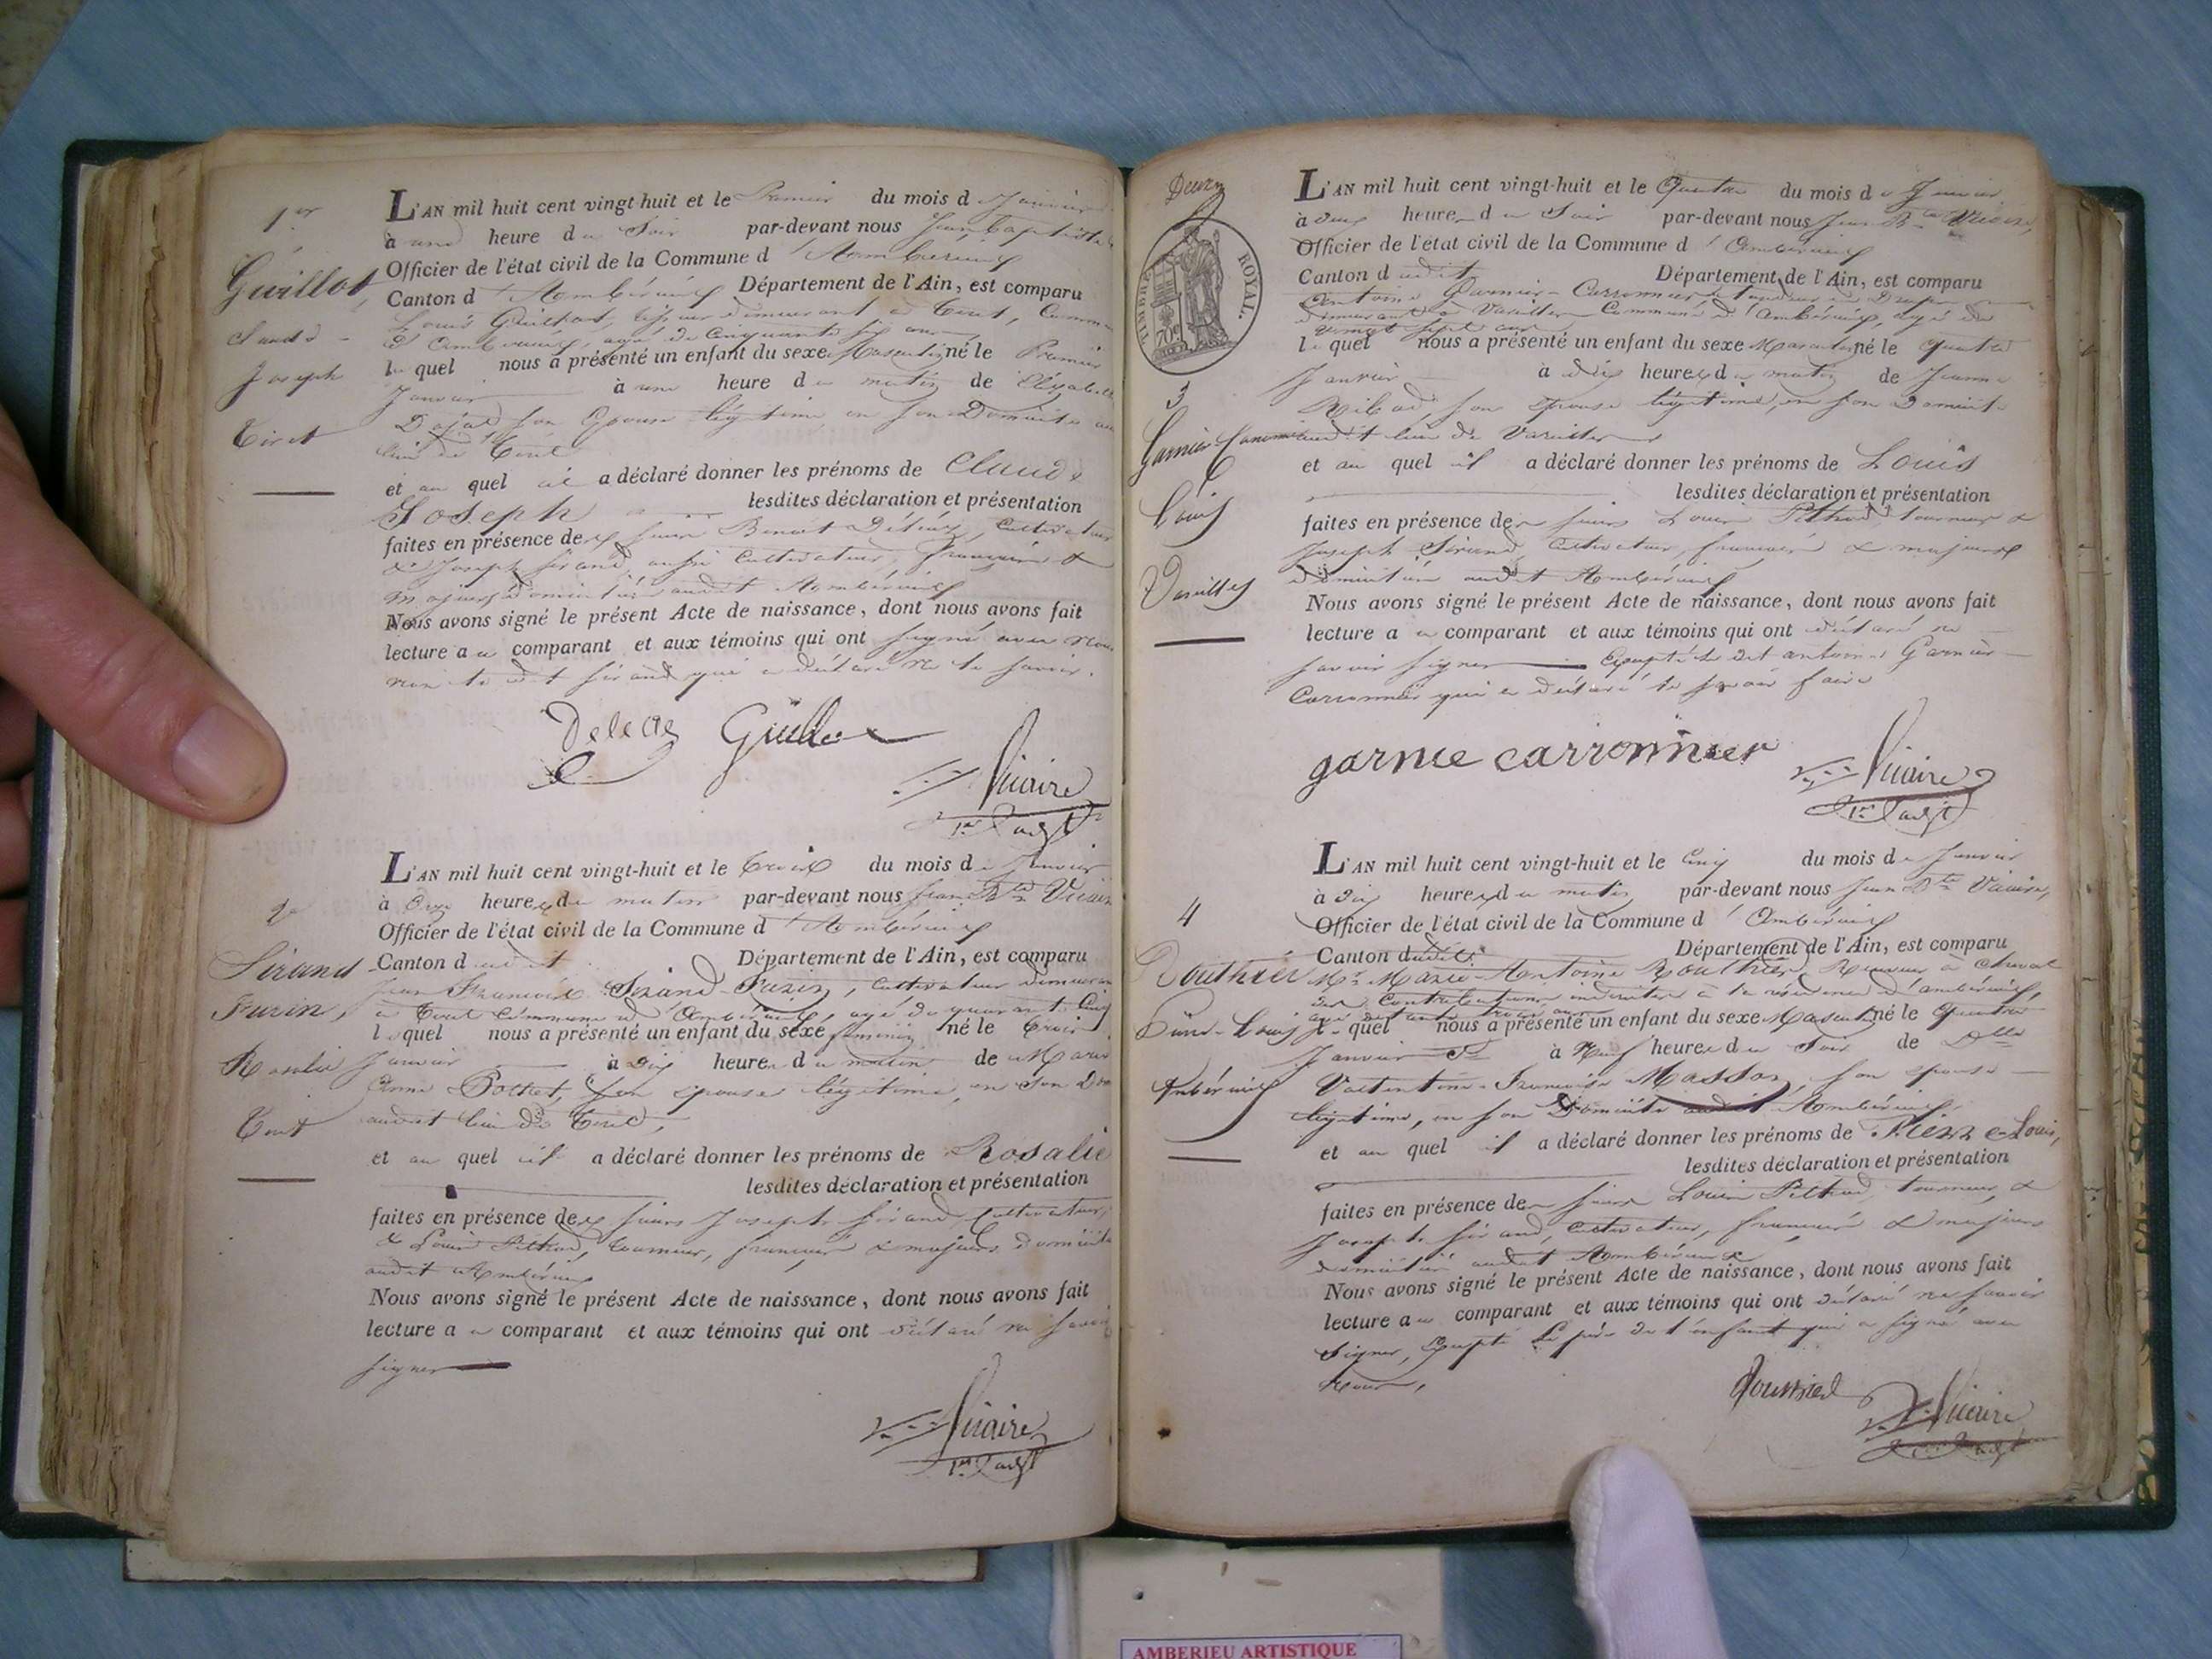 1er
Guillot,
Claude
Joseph
Tiret
L'AN mil huit cent vingt-huit et le Premier du mois de Janvier
à une heure du Soir par-devant nous Jean Baptiste
Officier de l'état civil de la Commune d'Ambérieux
Canton d'Ambérieux Département de l'Ain, est comparu
Louis Guillot, demeurant à Tiret, Commune
d'Ambérieux, agé de Cinquante six ans
lequel nous a présenté un enfant du sexe Masculin né le Premier
Janvier à une heure du matin de
son Epouse légitime en son Domicile au
lieu de Tiret
et au quel il a déclaré donner les prénoms de Claude
Joseph lesdites déclaration et présentation
faites en présence des sieurs Benoit cultivateur
& Joseph Sirand, aussi Cultivateur, français &
majeurs domiciliés audit Ambérieux
Nous avons signé le présent Acte de naissance, dont nous avons fait
lecture au comparant et aux témoins qui ont signé avec nous
non le dit Sirand qui a déclaré ne le savoir.
Guillot
Vicaire
2e
Sirand
Furin,
Rosalie
Tiret
L'AN mil huit cent vingt-huit et le trois du mois de Janvier
à onze heures du matin par-devant nous Jean Bte Vicaire
Officier de l'état civil de la Commune d'Ambérieux
Canton dudit Département de l'Ain, est comparu
Jean François Sirand-Furin, cultivateur demeurant
à Tiret Commune d'Ambérieux, agé de quarante cinq
lequel nous a présenté un enfant du sexe féminin né le trois
Janvier à dix heures du matin de Marie
Anne Bottet, son epouse légitime, en son
audit lieu de Tiret,
et au quel il a déclaré donner les prénoms de Rosalie
lesdites déclaration et présentation
faites en présence des sieurs Joseph Sirand, Cultivateur,
& Louis tourneur, français & majeurs domiciliés
audit Ambérieux
Nous avons signé le présent Acte de naissance, dont nous avons fait
lecture au comparant et aux témoins qui ont déclaré ne savoir
signer
Vicaire
TIMBRE ROYAL.
70c
3
Garnier Carronnier
Louis
Vareilles
L'AN mil huit cent vingt-huit et le Quatre du mois de Janvier
à deux heures du Soir par-devant nous Jean Bte Vicaire,
Officier de l'état civil de la Commune d'Ambérieux
Canton dudit Département de l'Ain, est comparu
Antoine Garnier-Carronnier
demeurant à Vareilles Commune d'Ambérieux, agé de
vingt sept ans
lequel nous a présenté un enfant du sexe Masculin né le quatre
Janvier à dix heures du matin de Jeanne
son epouse légitime, en son Domicile
audit lieu de Vareilles
et au quel il a déclaré donner les prénoms de Louis
lesdites déclaration et présentation
faites en présence des sieurs Louis tourneur &
Joseph Sirand, Cultivateur, français & majeurs
domiciliés audit Ambérieux
Nous avons signé le présent Acte de naissance, dont nous avons fait
lecture au comparant et aux témoins qui ont déclaré ne
savoir signer Excepté le dit antoine Garnier
Carronnier qui a déclaré le savoir faire
garnie carronnier
Vicaire
4
Routhier
Pierre-Louis
Ambérieux
L'AN mil huit cent vingt-huit et le Cinq du mois de Janvier
à dix heures du matin par-devant nous Jean Bte Vicaire,
Officier de l'état civil de la Commune d'Ambérieux
Canton dudit Département de l'Ain, est comparu
Mr Marie-Antoine Routhier, Receveur à cheval
des Contributions indirectes à la résidence d'ambérieux,
agé de trente trois ans
lequel nous a présenté un enfant du sexe Masculin né le Quatre
Janvier à Neuf heures du Soir de Dlle
Valentine-Françoise Masson, son epouse
légitime, en son Domicile audit Ambérieux,
et au quel il a déclaré donner les prénoms de Pierre Louis,
lesdites déclaration et présentation
faites en présence des sieurs Louis tourneur, &
Joseph Sirand, cultivateur, français & majeurs
domiciliés audit Ambérieux
Nous avons signé le présent Acte de naissance, dont nous avons fait
lecture au comparant et aux témoins qui ont déclaré ne savoir
signer, Excepté Le père de l'enfant qui a signé avec
Nous,
Vicaire
AMBERIEU ARTISTIQUE